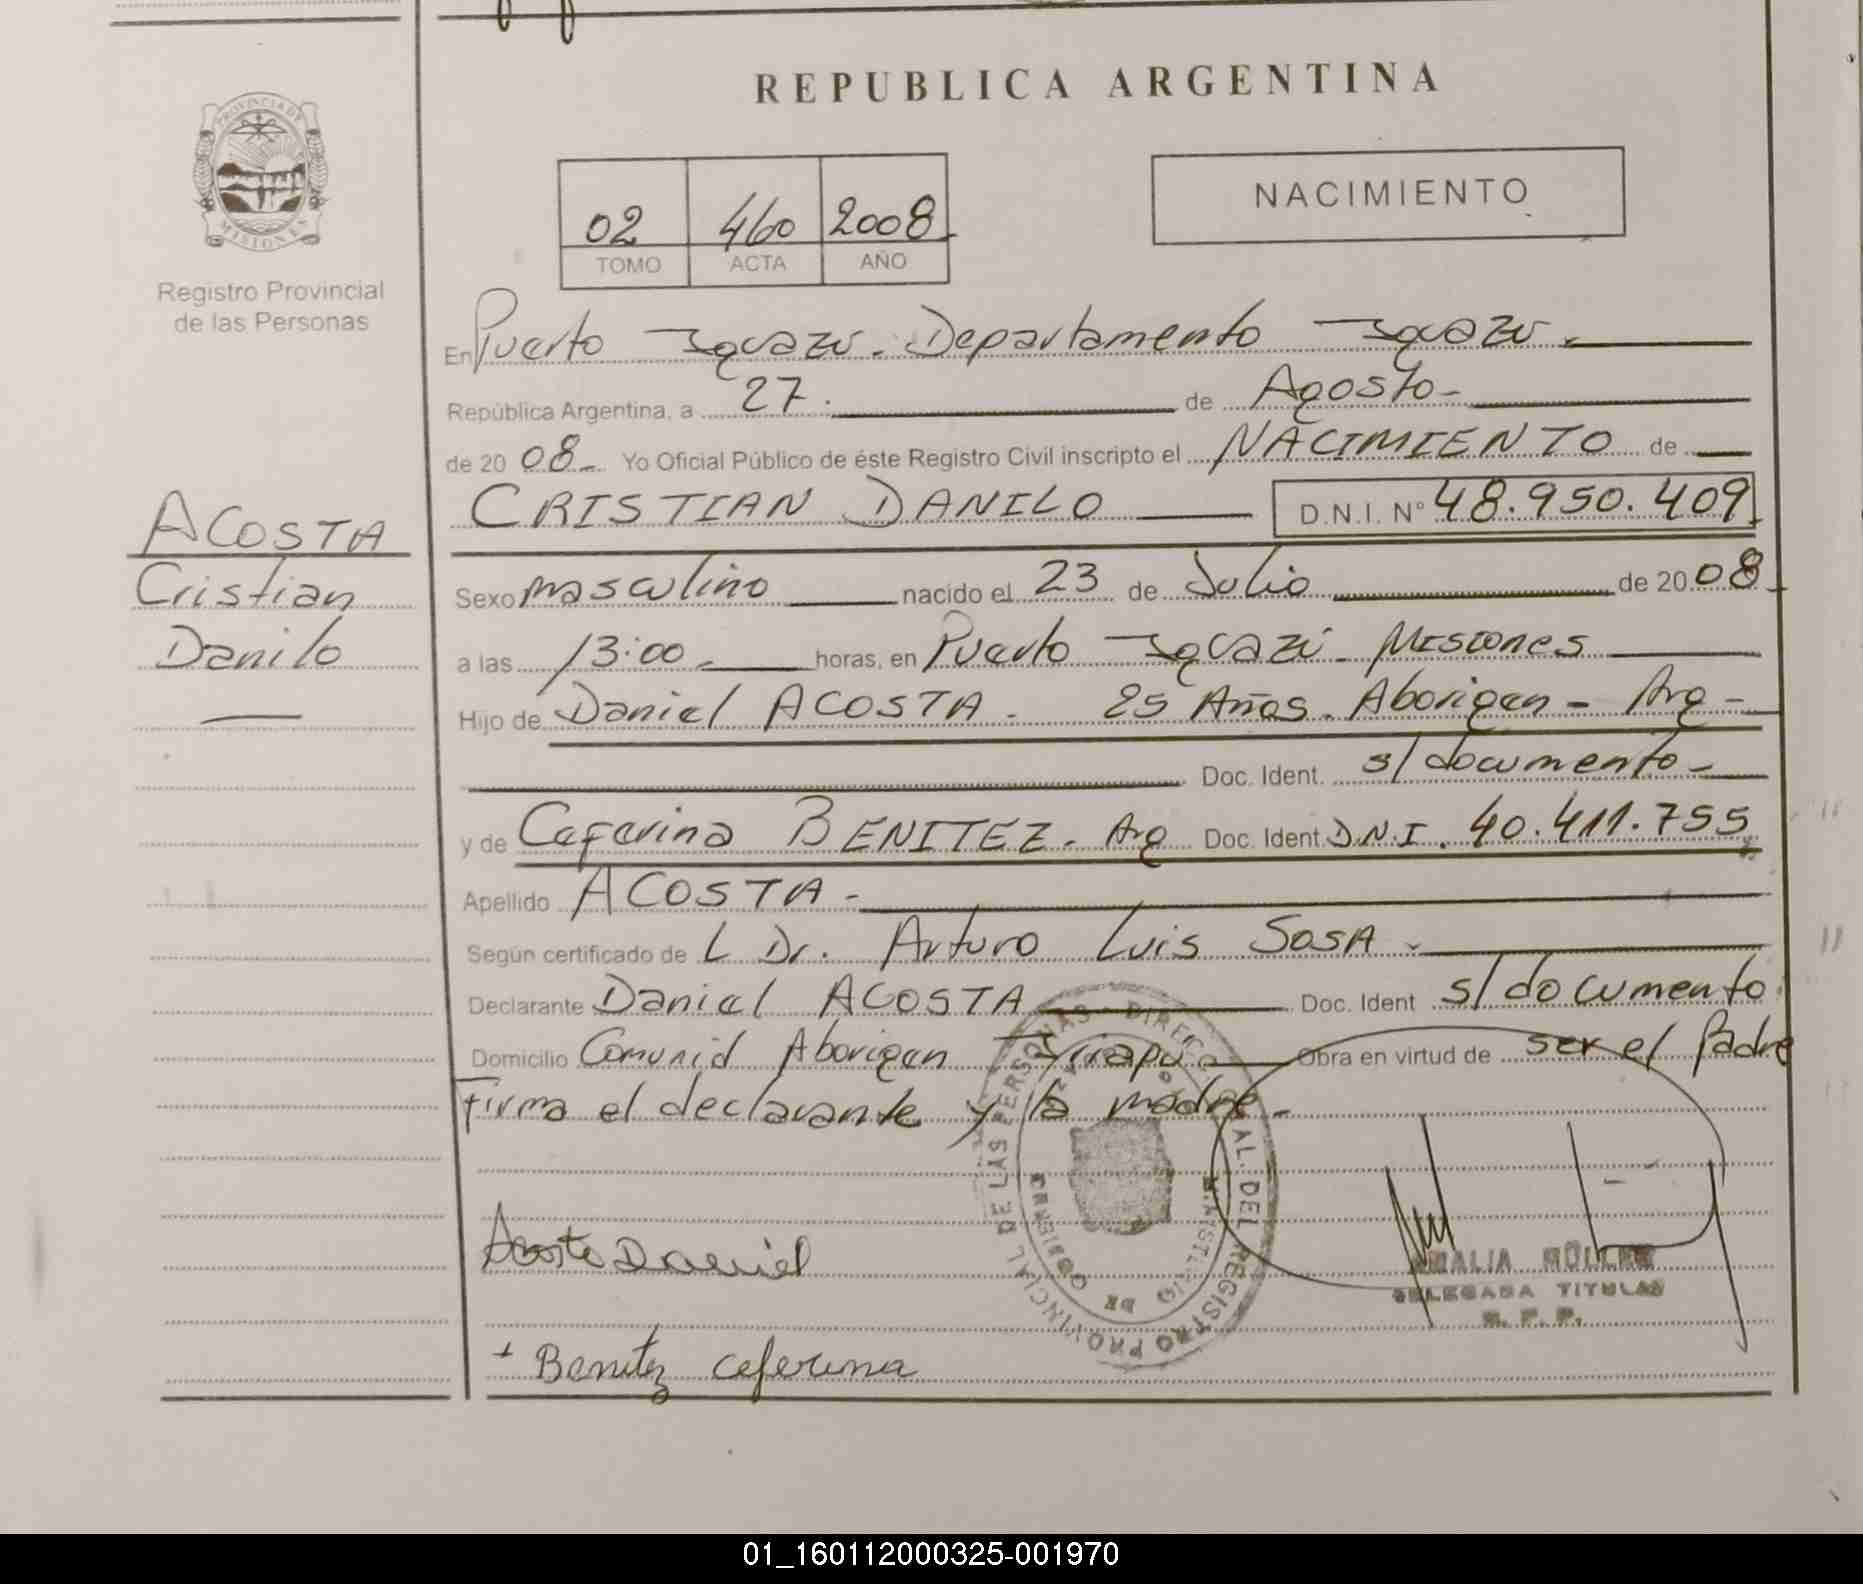 REPUBLICA ARGENTINA
PROVINCIA DE MISIONES
Registro Provincial
de las Personas
NACIMIENTO
02 460 2008
TOMO ACTA AÑO
En Puerto Iguazú. Departamento Iguazú.
República Argentina, a 27. de Agosto
de 2008 Yo Oficial Público de éste Registro Civil inscripto el NACIMIENTO de
CRISTIAN DANILO D.N.I. N° 48.950.409
ACOSTA
Cristian
Danilo
Sexo masculino nacido el 23 de Julio de 2008
a las 13:00 horas, en Puerto Iguazú Misiones
Hijo de Daniel ACOSTA. 25 Años. Aborigen - Arg -
Doc. Ident. s/documento
y de Ceferina BENITEZ. Arg Doc. Ident D.N.I. 40.411.755
Apellido ACOSTA
Según certificado de L Dr. Arturo Luis SOSA
Declarante Daniel ACOSTA Doc. Ident s/documento
Domicilio Comunid Aborigen Obra en virtud de ser el Padre
Firma el declarante y la madre
Acosta Daniel
+ Benitez ceferina
DIRECC PROVINCIAL DEL REGISTRO PROVINCIAL DE LAS PERSONAS
MINISTERIO DE GOBIERNO
AMALIA MÜLLER
DELEGADA TITULAR
R. P. P.
01_160112000325-001970